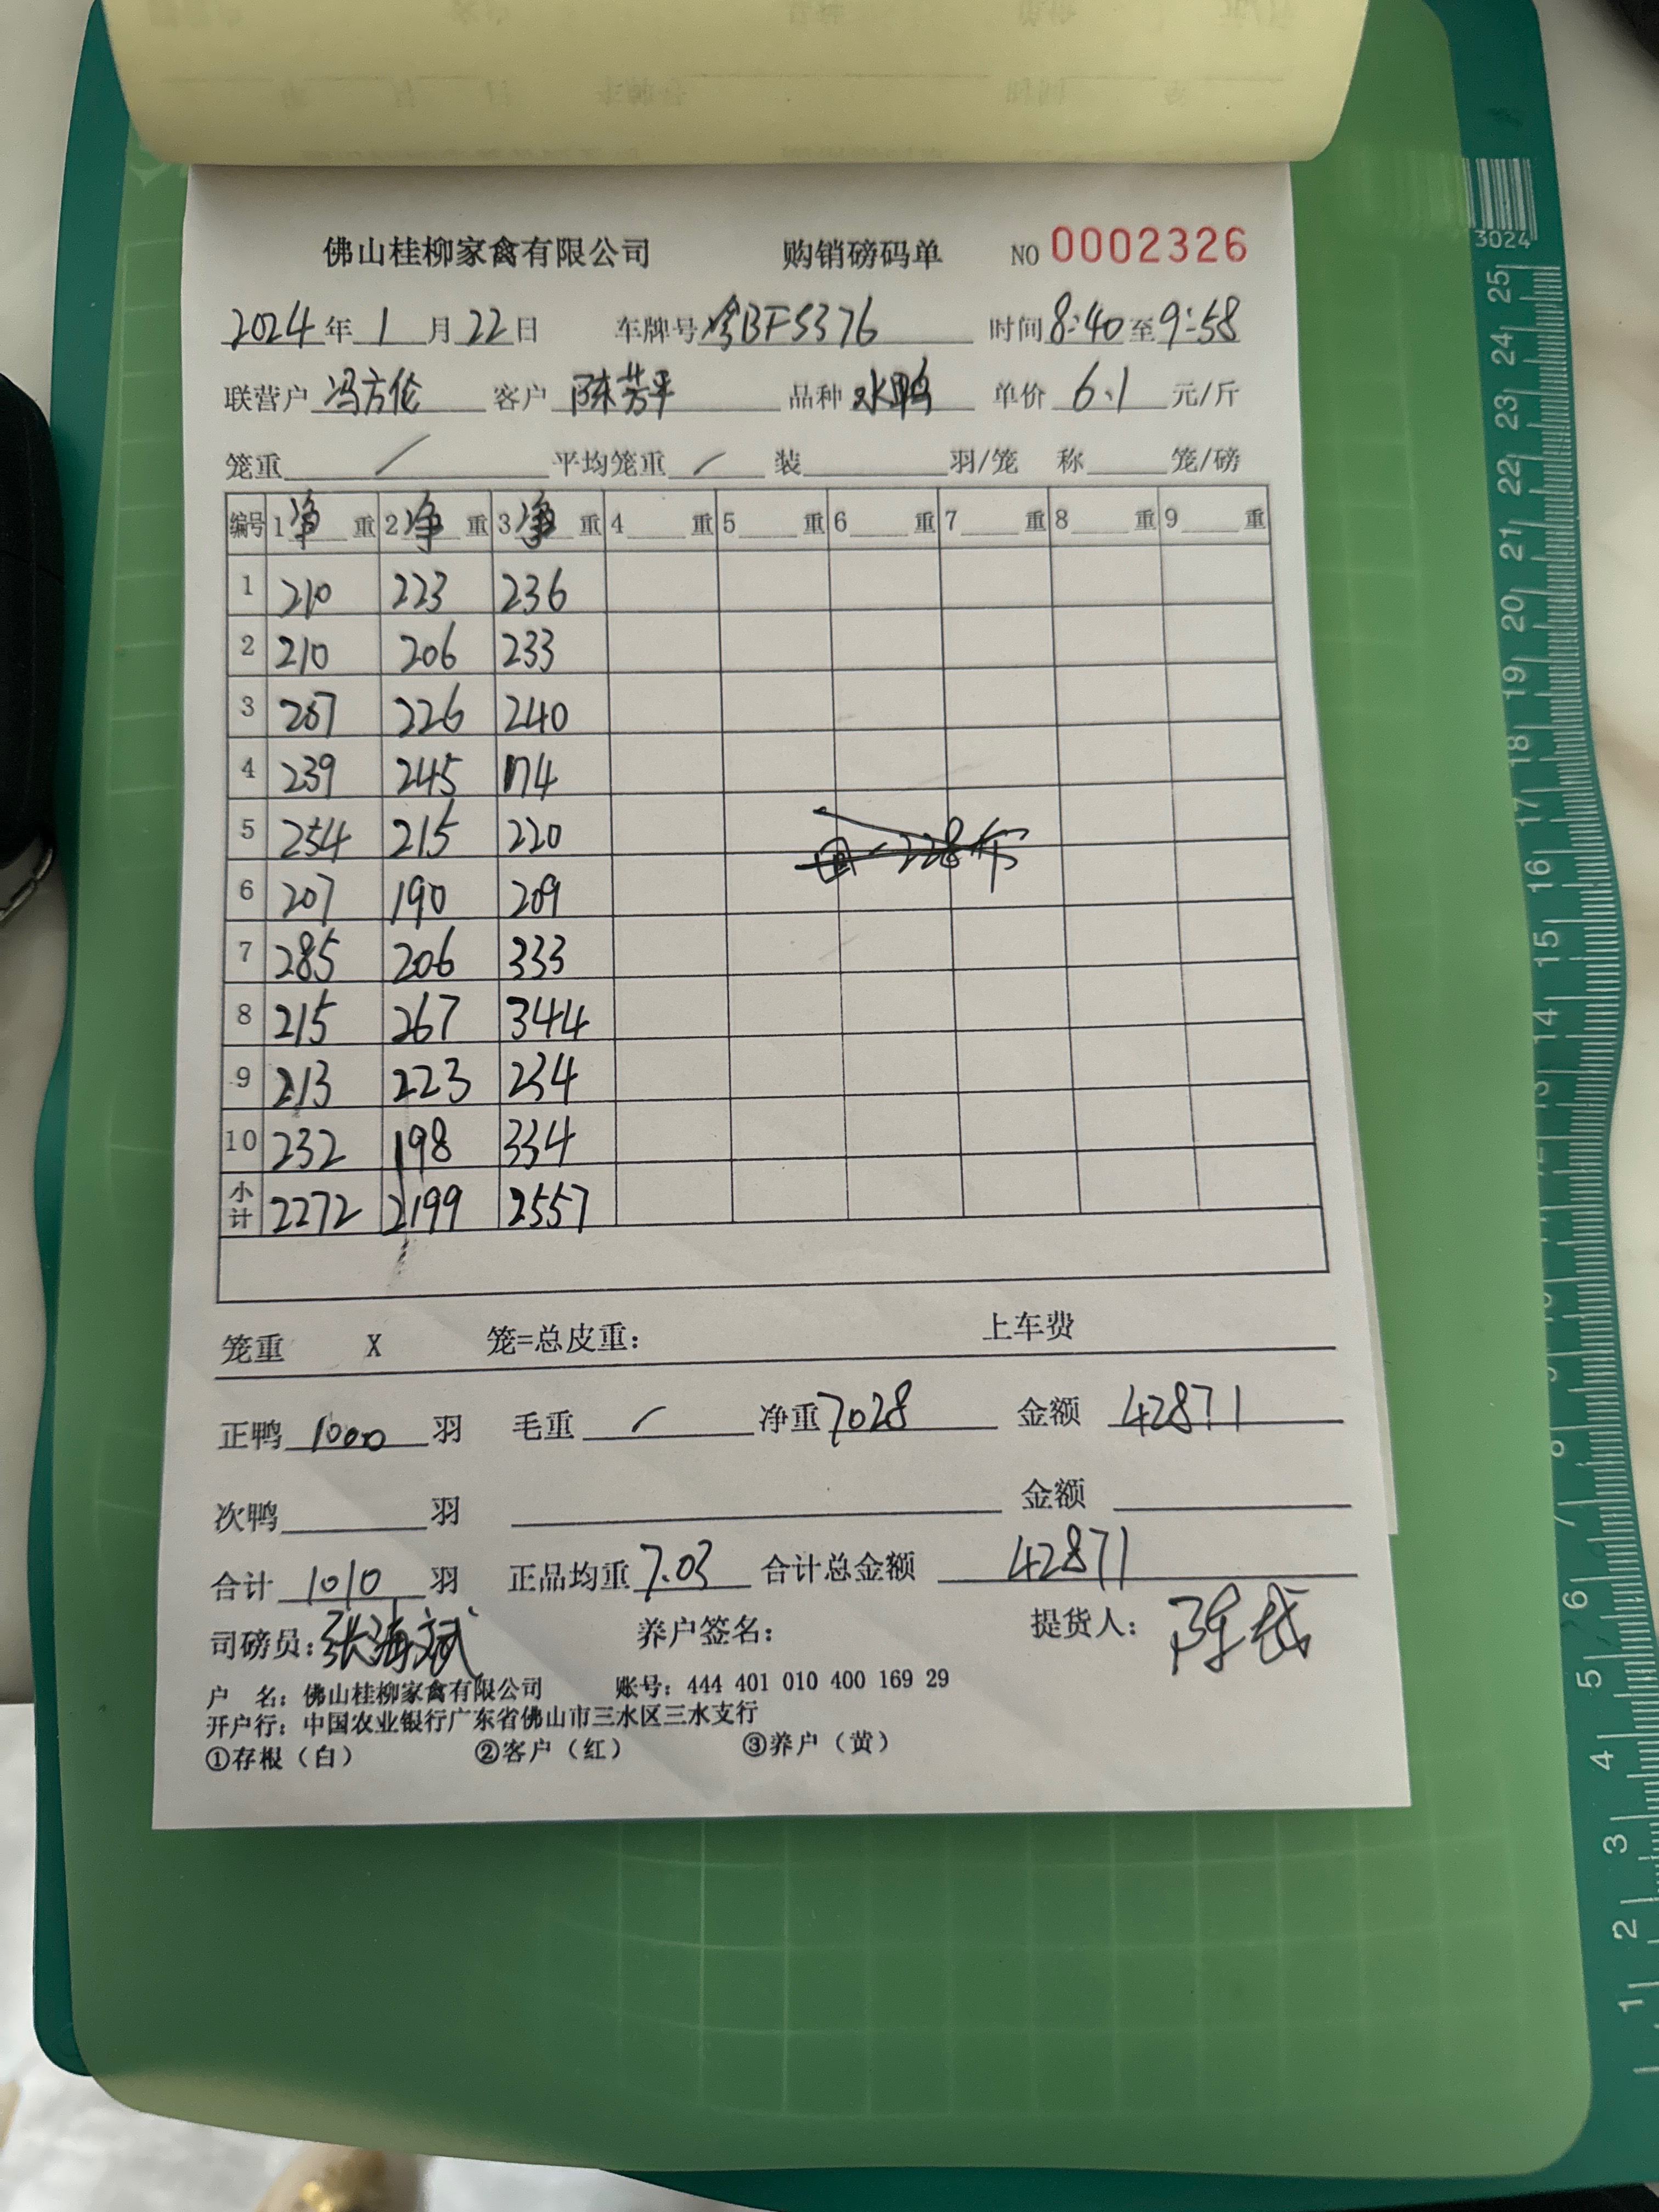 佛山桂柳家禽有限公司 购销磅码单 NO 0002326
2024年1月22日 车牌号 粤BF5376 时间 8:40 至 9:58
联营户 冯方伦 客户 陈芳平 品种 水鸭 单价 6.1 元/斤
笼重 / 平均笼重 / 装 羽/笼 称 笼/磅
编号 1净重 2净重 3净重 4 重 5 重 6 重 7 重 8 重 9 重
1 210 223 236
2 210 206 233
3 207 226 240
4 239 245 174
5 254 215 220
6 207 190 209
7 285 206 333
8 215 267 344
9 213 223 234
10 232 198 334
小计 2272 2199 2557
笼重 X 笼=总皮重: 上车费
正鸭 1000 羽 毛重 / 净重 7028 金额 42871
次鸭 羽 金额
合计 1010 羽 正品均重 7.03 合计总金额 42871
司磅员: 张海斌 养户签名: 提货人:
户 名: 佛山桂柳家禽有限公司 账号: 444 401 010 400 169 29
开户行: 中国农业银行广东省佛山市三水区三水支行
①存根（白） ②客户（红） ③养户（黄）
3024
25
24
23
22
21
20
19
18
17
16
15
14
13
12
8
7
6
5
4
3
2
1